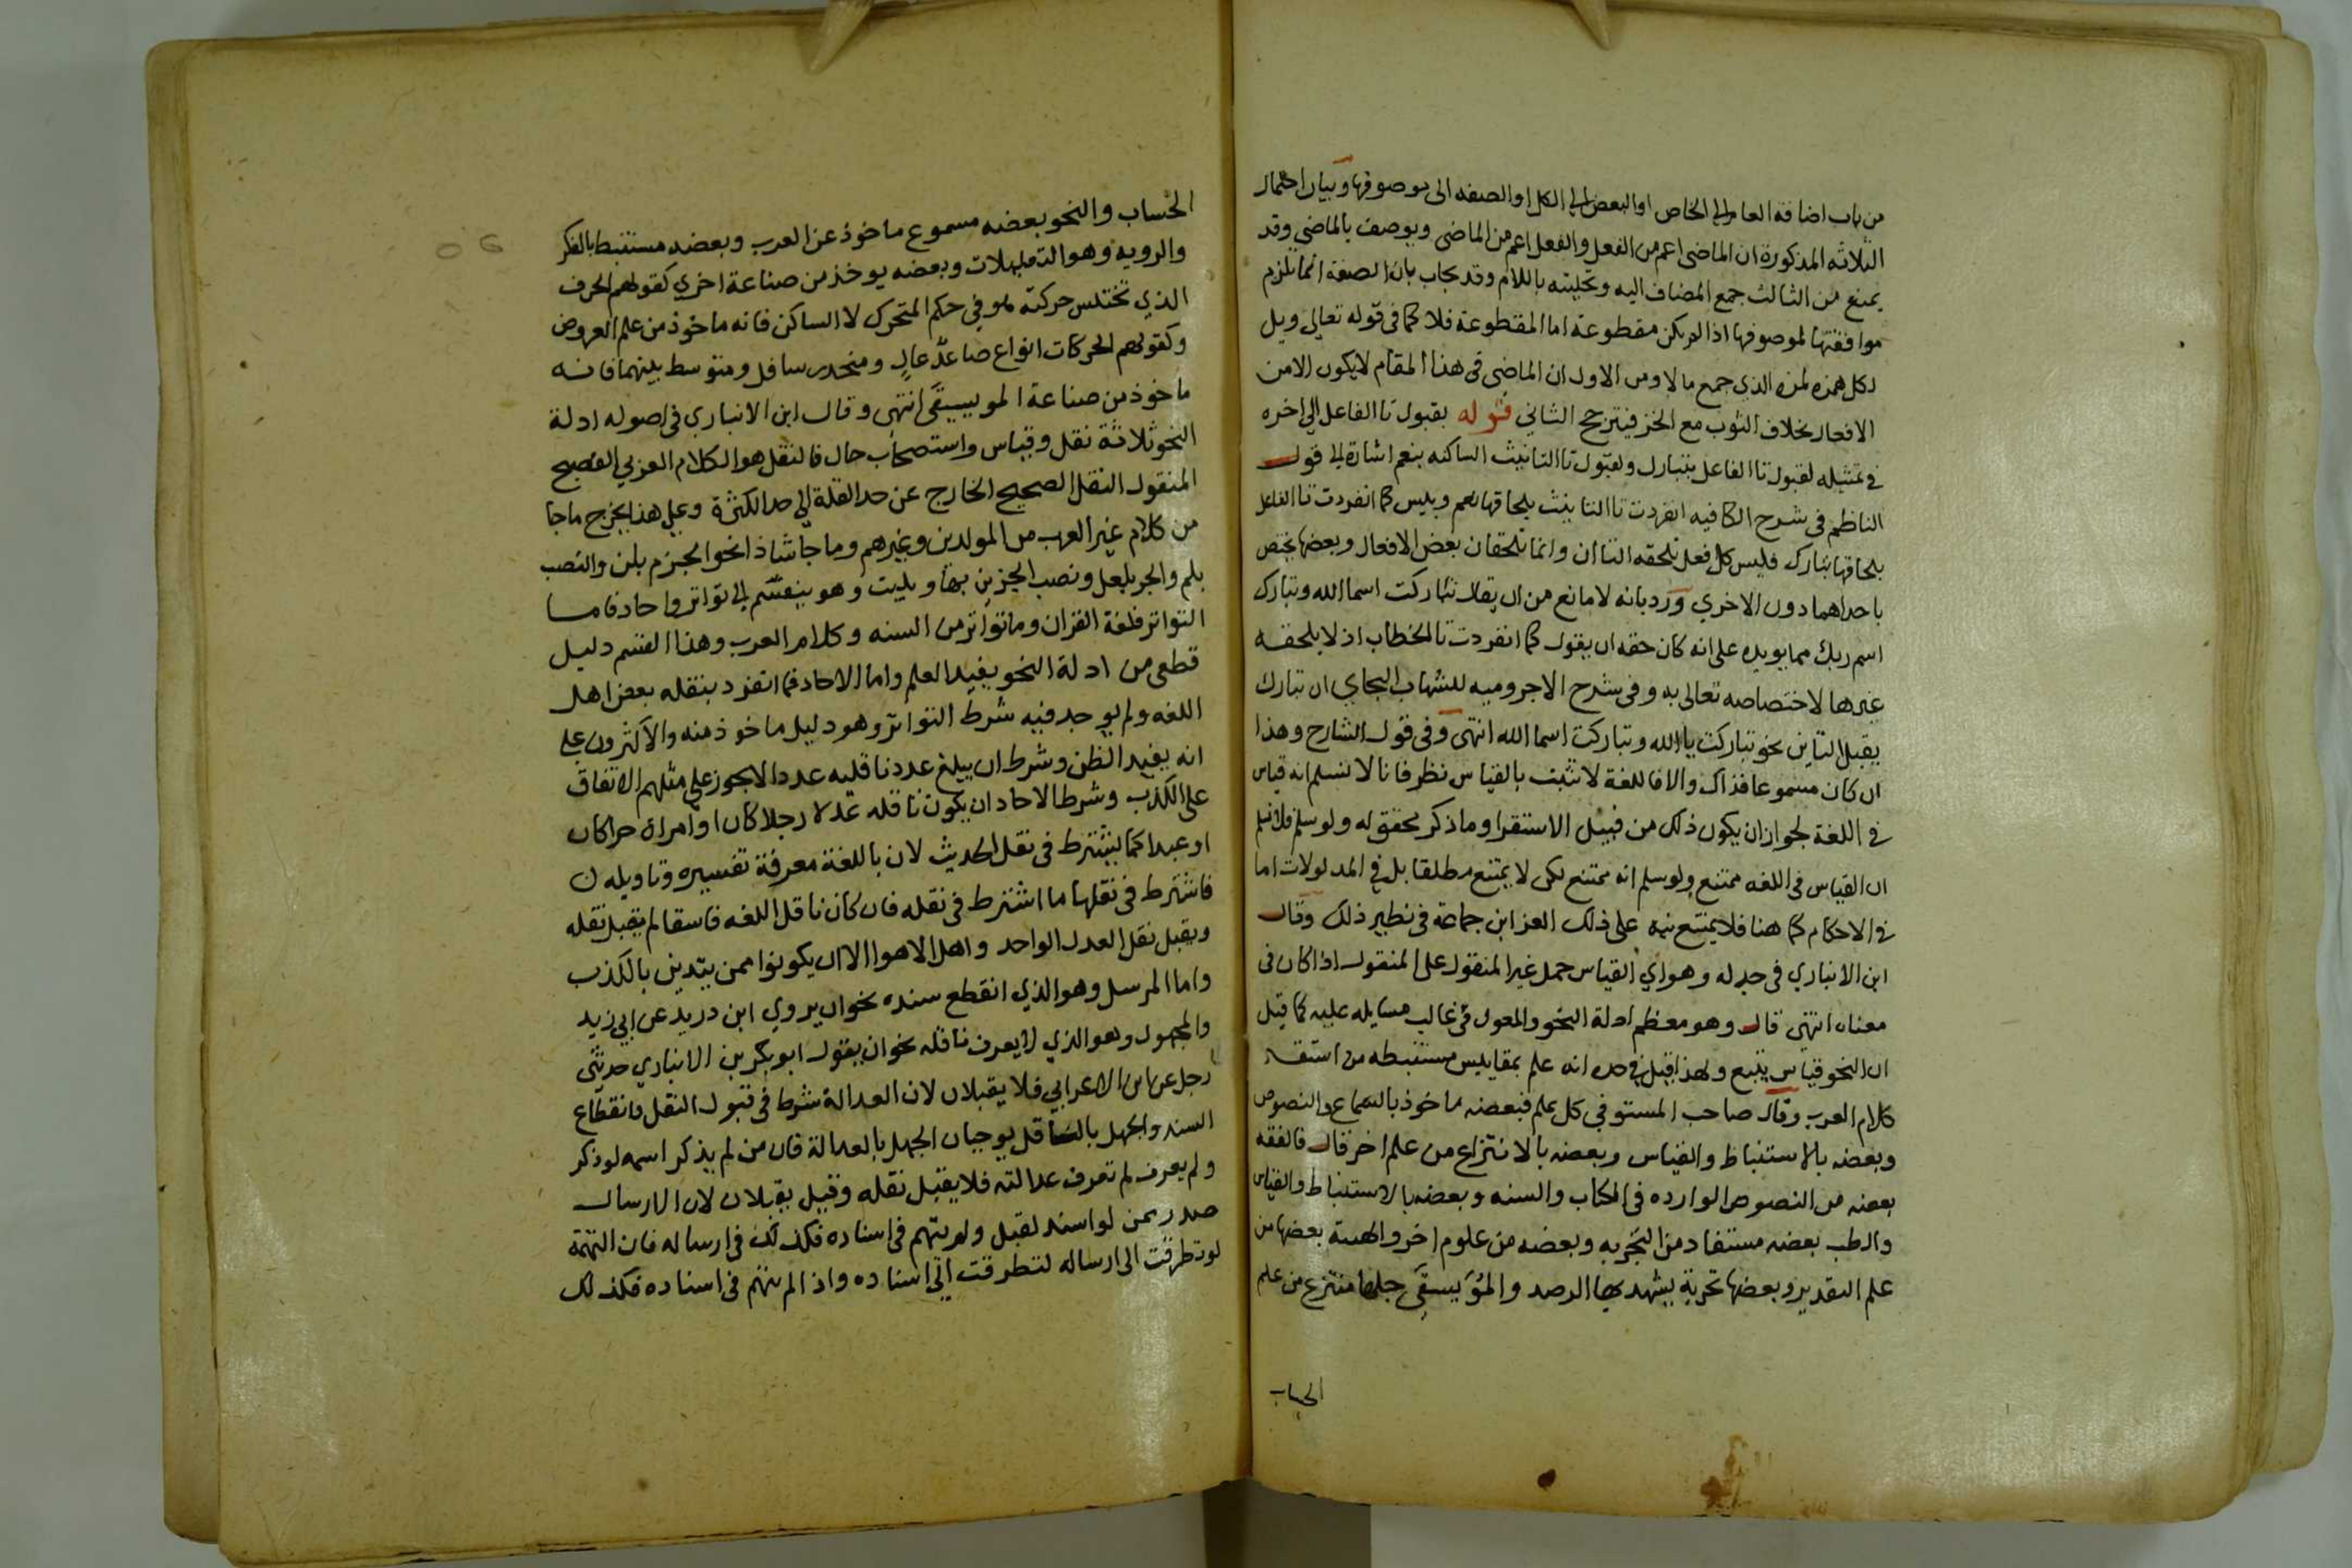 من باب اضافة العام الى الخاص او البعض الى الكل او الصفه الى موصوفها وبيان احتمال
الثلاثه المذكورة ان الماضى اعم من الفعل والفعل اعم من الماضى ويوصف بالماضي وقد
يمنع من الثالث جمع المضاف اليه وتحليته باللام وقد يجاب بان الصفة انما يلزم
موافقتها لموصوفها اذا لم يكن مقطوعة اما المقطوعة فلا كما فى قوله تعالى ويل
لكل همزه لمزه الذي جمع مالا ومن الاول ان الماضى فى هذا المقام لا يكون الا من
الافعال بخلاف الثوب مع الخز فيترجح الثاني قوله بقبول تا الفاعل الى اخره
في تمثيله لقبول تا الفاعل بتبارك ولقبول تا التانيث الساكنه بنعم اشارة الى قول
الناظم فى شرح الكافيه انفردت تا التانيث بلحاقها نعم وبيس كما انفردت تا الفاعل
بلحاقها تبارك فليس كل فعل تلحقه التاان وانما تلحقان بعض الافعال وبعضها يختص
باحداهما دون الاخري ورد بانه لا مانع من ان يقال تباركت اسما الله وتبارك
اسم ربك مما يويده على انه كان حقه ان يقول كما انفردت تا الخطاب اذ لا يلحقه
غيرها لاختصاصه تعالى به وفى شرح الاجروميه للشهاب البجاي ان تبارك
يقبل التاين نحو تباركت يا الله وتباركت اسما الله انتهى وفى قول الشارح وهذا
ان كان مسموعا فذاك والا فاللغة لا تثبت بالقياس نظر فانا لا نسلم انه قياس
في اللغة لجواز ان يكون ذلك من قبيل الاستقرا وما ذكر محقق له ولو سلم فلا نسلم
ان القياس فى اللغه ممتنع ولو سلم انه ممتنع لكن لا يمتنع مطلقا بل في المدلولات اما
في الاحكام كما هنا فلا يمتنع نبه على ذلك العز ابن جماعة فى نظير ذلك وقال
ابن الانباري فى جدله وهو اي القياس حمل غير المنقول على المنقول اذا كان فى
معناه انتهى قال وهو معظم ادلة النحو والمعول فى غالب مسايله عليه كما قيل
ان النحو قياس يتبع ولهذا قيل في حده انه علم بمقاييس مستنبطه من استقـ
كلام العرب وقال صاحب المستوفي كل علم فبعضه ماخوذ بالسماع والنصوص
وبعضه بالاستنباط والقياس وبعضه بالانتزاع من علم اخر قال فالفقه
بعضه من النصوص الوارده فى الكتاب والسنه وبعضه بالاستنباط والقياس
والطب بعضه مستفاد من التجربه وبعضه من علوم اخر والهيئة بعضها من
علم التقدير وبعضها تجربة يشهد بها الرصد والموَيسيقَى جلها منتزع من علم
الحساب
الحساب والنحو بعضه مسموع ماخوذ عن العرب وبعضه مستنبط بالفكر
والرويه وهو التعليلات وبعضه يوخذ من صناعة اخري كقولهم الحرف
الذي تختلس حركته هو في حكم المتحرك لا الساكن فانه ماخوذ من علم العروض
وكقولهم الحركات انواع صاعد عالٍ ومنحدر سافل ومتوسط بينهما فانه
ماخوذ من صناعة الموسيقَى انتهى وقال ابن الانباري فى اصوله ادلة
النحو ثلاثة نقل وقياس واستصحاب حال فالنقل هو الكلام العربي الفصيح
المنقول النقل الصحيح الخارج عن حد القلة الي حد الكثرة وعلى هذا يخرج ما جا
من كلام غير العرب من المولدين وغيرهم وما جا شاذا نحو الجزم بلن والنصب
بلم والجر بلعل ونصب الجزين بها وبليت وهو ينقسم الى تواتر واحاد فاما
التواتر فلغة القران وما تواتر من السنه وكلام العرب وهذا القسم دليل
قطعى من ادلة النحو يفيد العلم واما الاحاد فما انفرد بنقله بعض اهل
اللغه ولم يوجد فيه شرط التواتر وهو دليل ماخوذ منه والاكثرون على
انه يفيد الظن وشرط ان يبلغ عدد ناقليه عددا لا يجوز على مثلهم الاتفاق
على الكذب وشرط الاحاد ان يكون ناقله عدلا رجلا كان او امراة حرا كان
او عبدا كما يشترط فى نقل الحديث لان باللغة معرفة تفسيره وتاويله
فاشترط فى نقلها ما اشترط فى نقله فان كان ناقل اللغه فاسقا لم يقبل نقله
ويقبل نقل العدل الواحد واهل الاهوا الا ان يكونوا ممن يتدين بالكذب
واما المرسل وهو الذي انقطع سنده نحو ان يروي ابن دريد عن ابي زيد
والمجهول وهو الذي لا يعرف ناقله نحو ان يقول ابو بكر بن الانباري حدثنى
رجل عن ابن الاعرابي فلا يقبلان لان العدالة شرط فى قبول النقل وانقطاع
السند والجهل بالناقل يوجبان الجهل بالعدالة فان من لم يذكر اسمه لو ذكر
ولم يعرف لم تعرف عدالته فلا يقبل نقله وقيل يقبلان لان الارسال
صدر ممن لو اسند لقبل ولم يتهم فى اسناده فكذلك فى ارساله فان التهمة
لو تطرقت الى ارساله لتطرقت الى اسناده واذا لم يتهم فى اسناده فكذلك